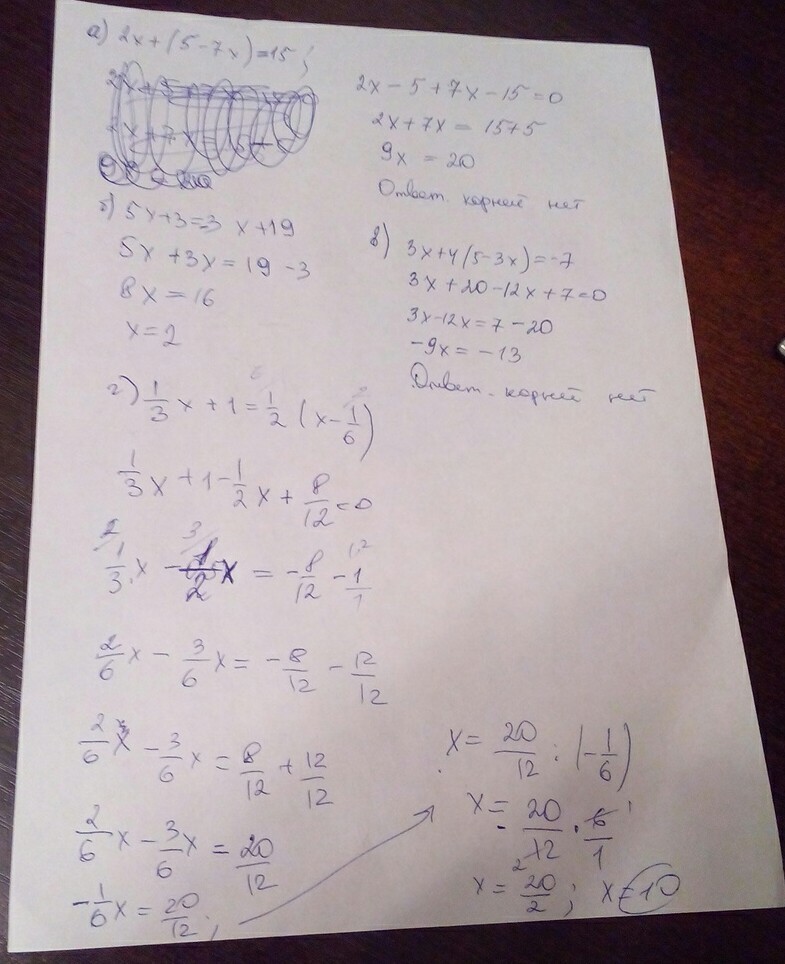 а) 2x+(5-7x)=15;
2x-5+7x-15=0
2x+7x=15+5
9x=20
Ответ. корней нет
б) 5x+3=-3x+19
5x+3x=19-3
8x=16
x=2
в) 3x+4(5-3x)=-7
3x+20-12x+7=0
3x-12x=7-20
-9x=-13
Ответ. корней нет
г) 1/3 x+1=1/2 (x-1/6)
1/3 x+1-1/2 x+8/12=0
1/3 x-1/2 x=-8/12-1/1
2/6 x-3/6 x=-8/12-12/12
2/6 x-3/6 x=8/12+12/12
2/6 x-3/6 x=20/12
-1/6 x=20/12;
x=20/12:(-1/6)
x=-20/12·6/1
x=20/2; x=10